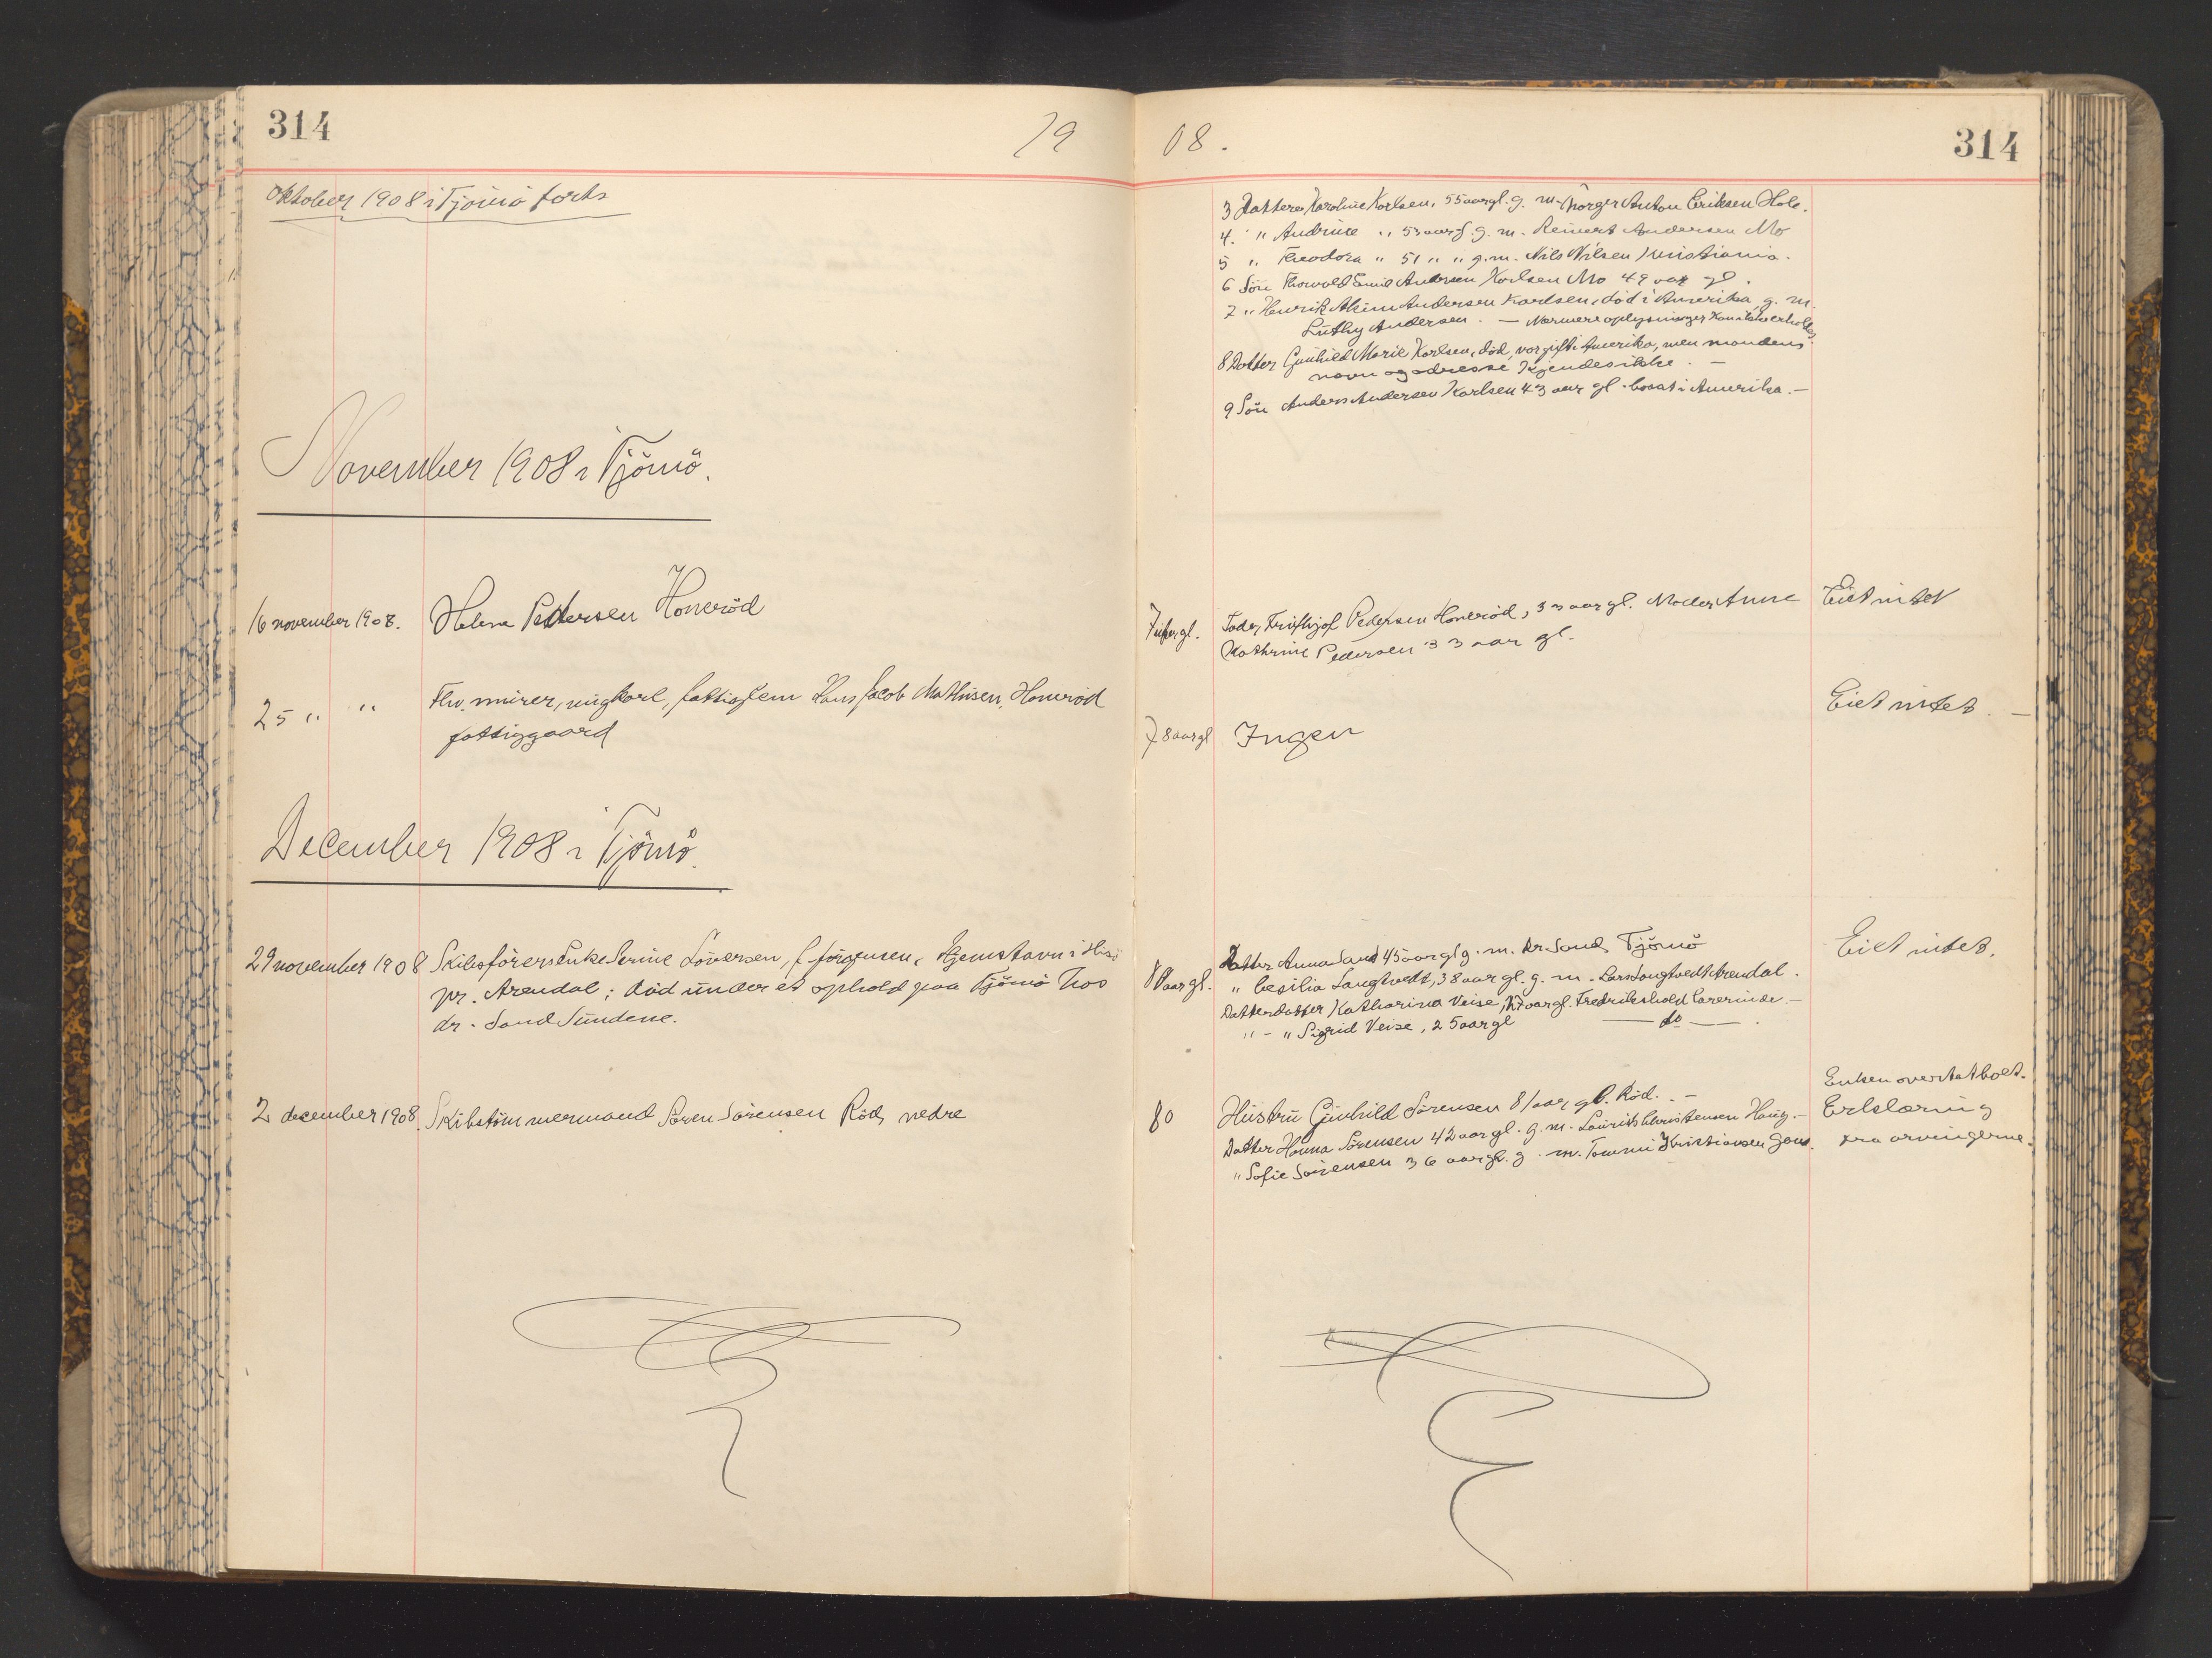 314
19
08.
314
Oktober 1908 i Tjömö forts
3 Datter Karoline Karlsen, 55 aar gl. g. m. Anton Eriksen Hole.
4. " Andrine " 53 aar g. g. m. Reinert Andersen Mo
5 " Theodora " 51 " " g.m. Nils Nilsen Kristiania.
6 Sön Thorvald Emil Andersen Karlsen Mo 49 aar gl.
7 " Henrik Andersen Karlsen, död i Amerika, g. m.
Andersen. — Nærmere oplysninger kan ikke erholdes
8 Datter Günhild Marie Karlsen, död, var gift i Amerika, men mandens
navn og adresse kjendes ikke. —
9 Sön Anders Andersen Karlsen 43 aar gl. bosat i Amerika. —
November 1908 i Tjömö.
16 november 1908. Helena Pedersen Honeröd
7 gl. Fader Frithjof Pedersen Honeröd, 33 aar gl. Moder Anne
Kathrine Pedersen 33 aar gl.
Eiet intet
25 " " Fhv. mürer, üngkarl, fattiglem Hans Jacob Mathisen, Honeröd
fattiggaard
78 aar gl Ingen
Eiet intet. —
December 1908 i Tjömö.
29 november 1908 Skibsförerenke Serine Sörensen, f. Jörgensen, Hjemstavn i Hisö
pr. Arendal; död ünder et ophold paa Tjömö hos
dr. Sand Sündene.
aar gl. Datter Anna Sand 45 aar gl g. m. dr. Sand, Tjömö
" Cesilia Langtvedt, 38 aar gl. g. m. Lars Langtvedt Arendal.
Datterdatter Katharina Veise, 27 aar gl. Fredrikshald Lærerinde. —
" - " Sigrid Veise, 25 aar gl — do — .
Eiet intet.
2 december 1908. Skibstömmermand Sören Sörensen Röd, nedre
80
Hüstrü Günhild Sörensen 81 aar gl. Röd. . —
Datter Hanna Sörensen 42 aar gl. g. m. Laürits Christensen Haug. —
" Sofie Sörensen 36 aar gl. g. m. Kristiansen
Enken overtat boet.
Erklæring
fra arvingerne.